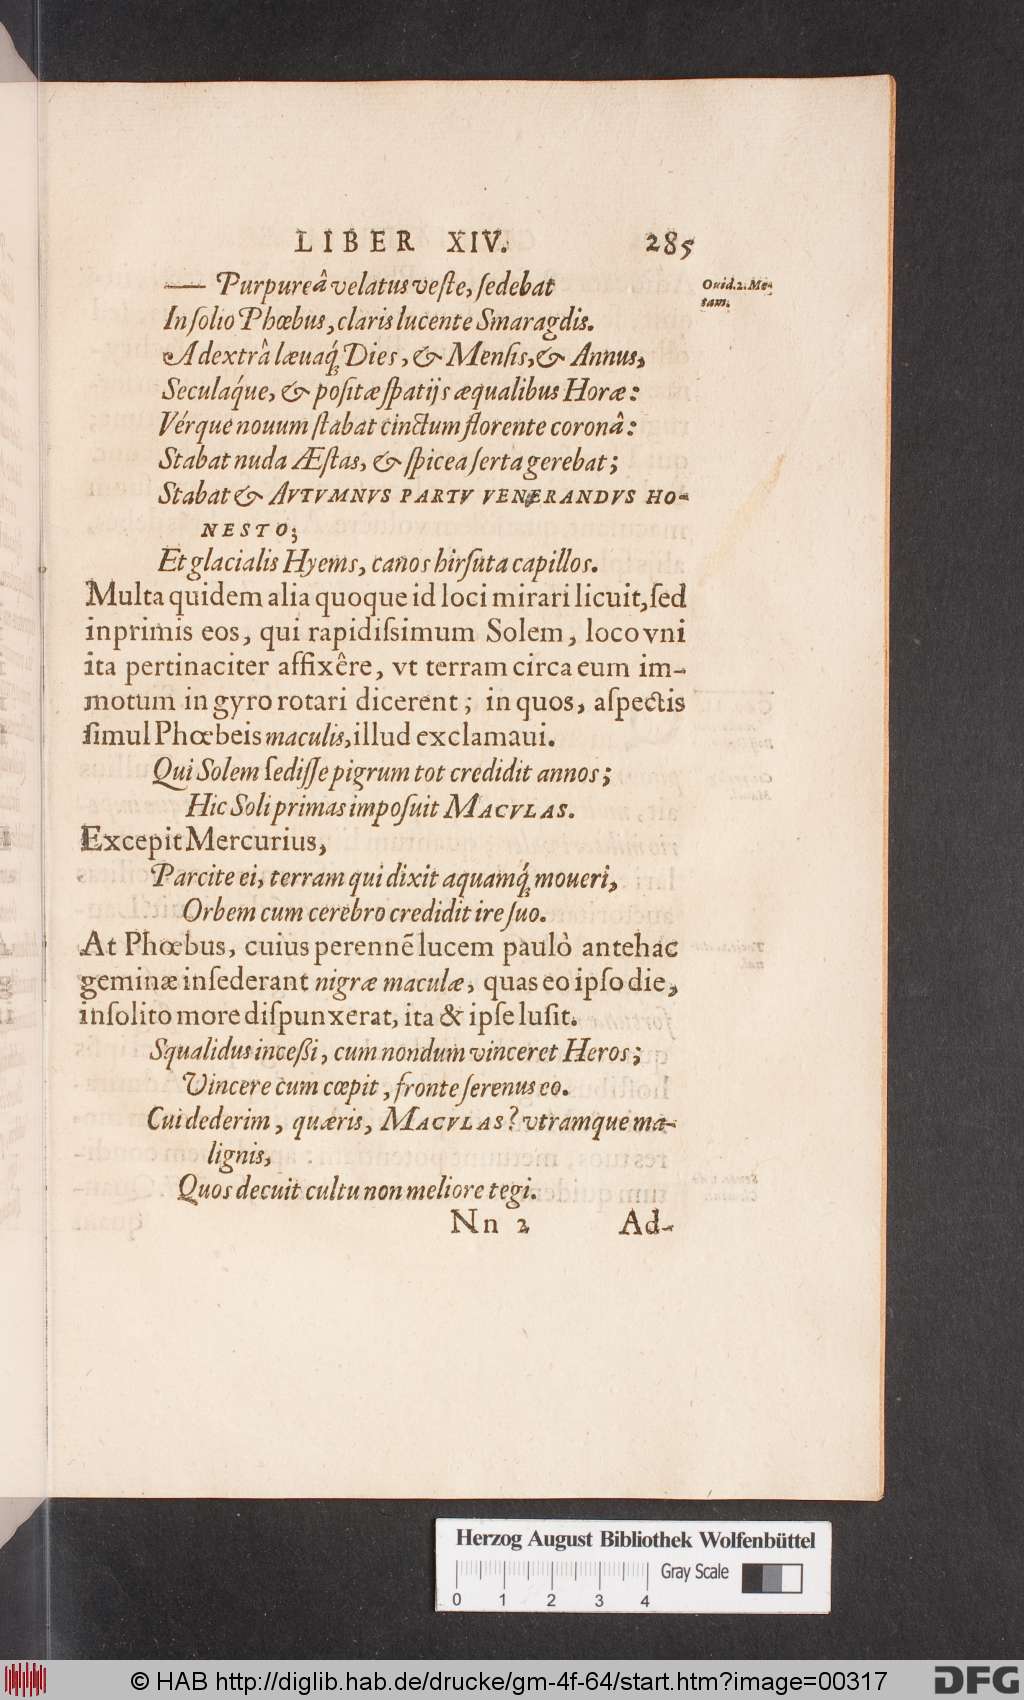 LIBER XIV. 285
— Purpureâ velatus veste, sedebat
Ouid. 2. Me-
tam.
In solio Phœbus, claris lucente Smaragdis.
A dextrâ lævaq́; Dies, & Mensis, & Annus,
Seculaq́ue, & positæ spatijs æqualibus Horæ:
Vérque nouum stabat cinctum florente coronâ:
Stabat nuda Æstas, & spicea serta gerebat;
Stabat & AVTVMNVS PARTV VENERANDVS HO-
NESTO;
Et glacialis Hyems, canos hirsuta capillos.
Multa quidem alia quoque id loci mirari licuit, sed
inprimis eos, qui rapidissimum Solem, loco vni
ita pertinaciter affixêre, vt terram circa eum im-
motum in gyro rotari dicerent; in quos, aspectis
simul Phœbeis maculis, illud exclamaui.
Qui Solem sedisse pigrum tot credidit annos;
Hic Soli primas imposuit MACVLAS.
Excepit Mercurius,
Parcite ei, terram qui dixit aquamq́; moueri,
Orbem cum cerebro credidit ire suo.
At Phœbus, cuius perennẽ lucem paulò antehac
geminæ insederant nigræ maculæ, quas eo ipso die,
insolito more dispunxerat, ita & ipse lusit.
Squalidus incessi, cum nondum vinceret Heros;
Vincere cum cœpit, fronte serenus eo.
Cui dederim, quæris, MACVLAS? vtramque ma-
lignis,
Quos decuit cultu non meliore tegi.
Nn 2 Ad-
Herzog August Bibliothek Wolfenbüttel
Gray Scale
0 1 2 3 4
© HAB http://diglib.hab.de/drucke/gm-4f-64/start.htm?image=00317
DFG